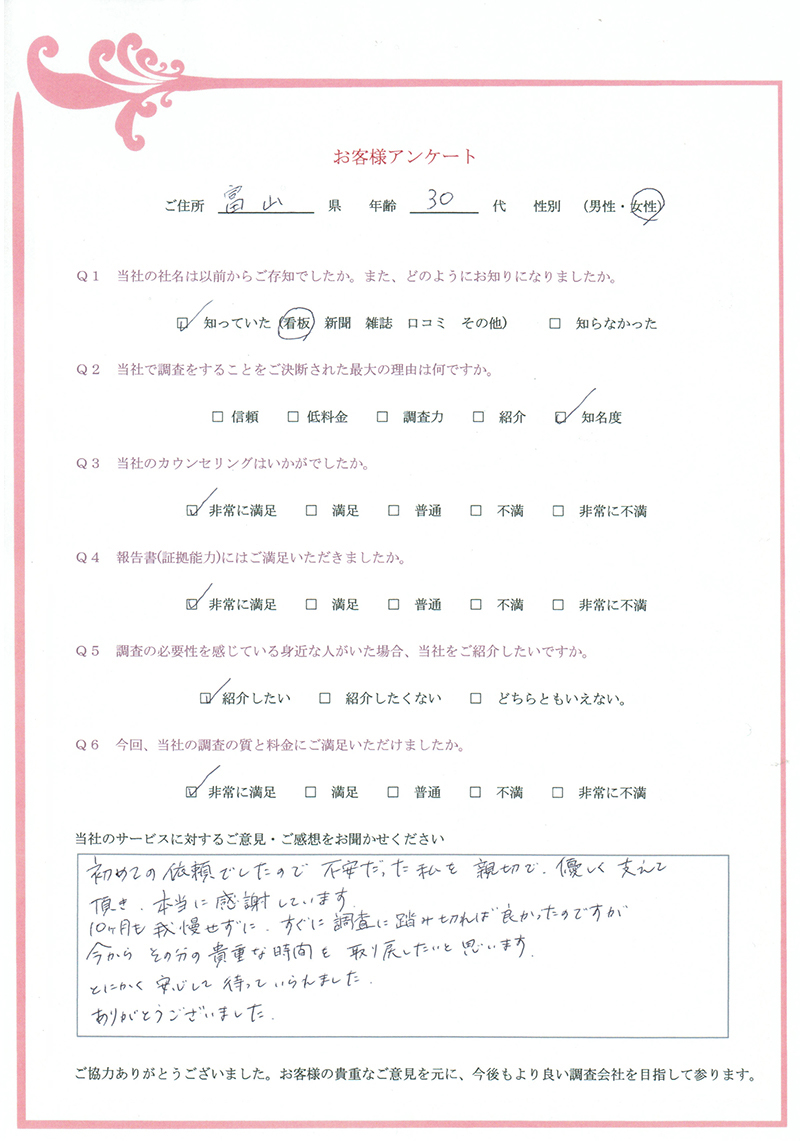 お客様アンケート
ご住所 富山 県 年齢 30 代 性別 (男性・女性)
Q1 当社の社名は以前からご存知でしたか。また、どのようにお知りになりましたか。
☑ 知っていた (看板 新聞 雑誌 口コミ その他) □ 知らなかった
Q2 当社で調査をすることをご決断された最大の理由は何ですか。
□ 信頼 □ 低料金 □ 調査力 □ 紹介 ☑ 知名度
Q3 当社のカウンセリングはいかがでしたか。
☑ 非常に満足 □ 満足 □ 普通 □ 不満 □ 非常に不満
Q4 報告書(証拠能力)にはご満足いただきましたか。
☑ 非常に満足 □ 満足 □ 普通 □ 不満 □ 非常に不満
Q5 調査の必要性を感じている身近な人がいた場合、当社をご紹介したいですか。
☑ 紹介したい □ 紹介したくない □ どちらともいえない。
Q6 今回、当社の調査の質と料金にご満足いただけましたか。
☑ 非常に満足 □ 満足 □ 普通 □ 不満 □ 非常に不満
当社のサービスに対するご意見・ご感想をお聞かせください
初めての依頼でしたので 不安だった私を 親切で、優しく支えて
頂き、本当に感謝しています。
10ヶ月も我慢せずに、すぐに調査に踏み切れば良かったのですが
今から その分の貴重な時間を 取り戻したいと思います。
とにかく 安心して 待っていられました。
ありがとうございました。
ご協力ありがとうございました。お客様の貴重なご意見を元に、今後もより良い調査会社を目指して参ります。